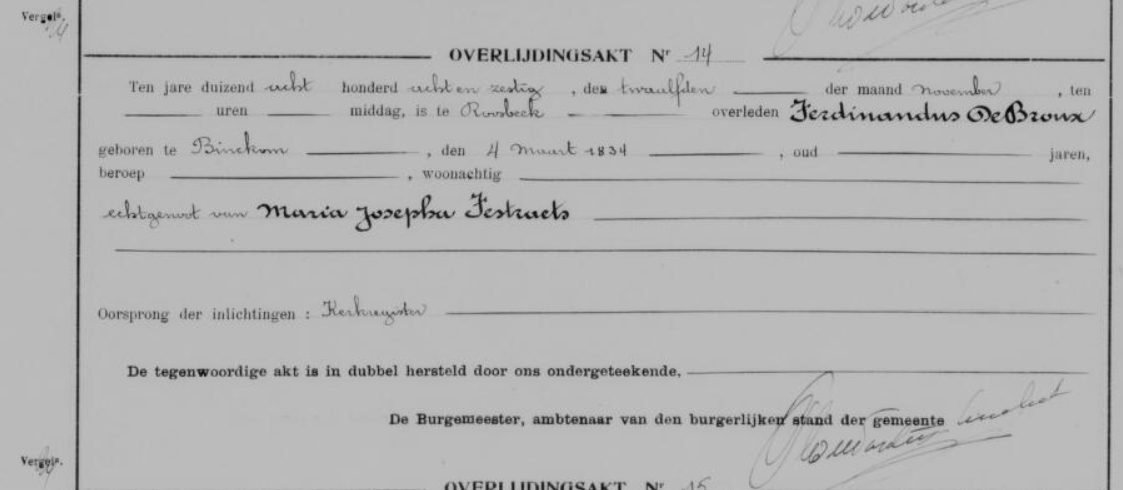 Vergel.
OVERLIJDINGSAKT Nr 14
Ten jare duizend acht honderd acht en zestig, den twaalfden der maand november, ten
uren middag, is te Roosbeek overleden Ferdinandus DeBroux
geboren te Binckom, den 4 maart 1834, oud jaren,
beroep, woonachtig
echtgenoot van Maria Josepha Festraets
Oorsprong der inlichtingen : Kerkregister
De tegenwoordige akt is in dubbel hersteld door ons ondergeteekende,
De Burgemeester, ambtenaar van den burgerlijken stand der gemeente
Vergel.
OVERLIJDINGSAKT Nr 15